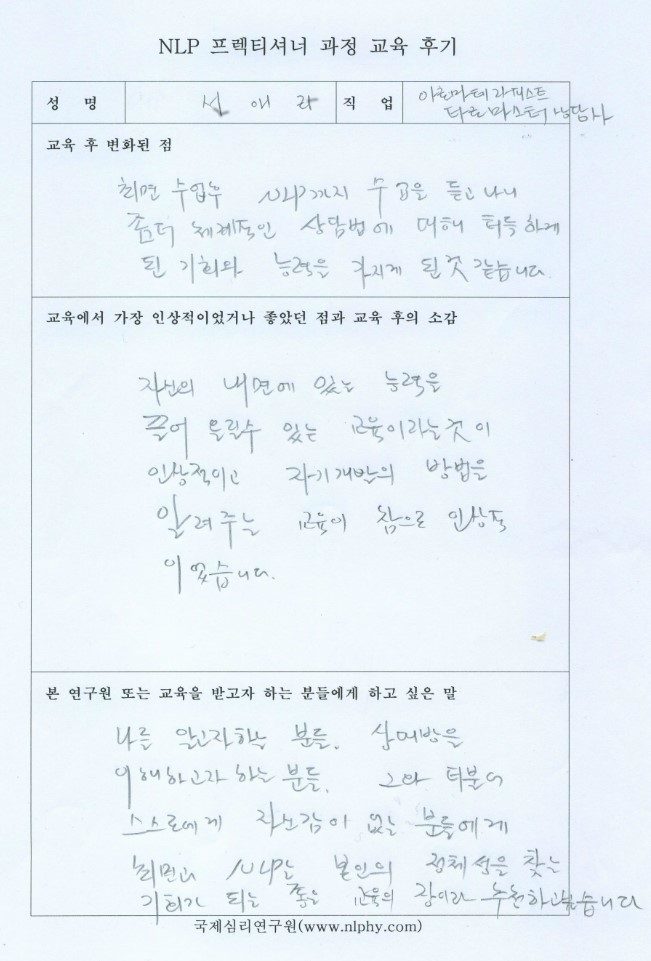 NLP 프렉티셔너 과정 교육 후기
성 명 선 애 라 직 업 아로마테라피스트
타로마스터 상담사
교육 후 변화된 점
최면 수업후 NLP까지 수업을 듣고 나니
좀더 체계적인 상담법에 대해 터득하게
된 기회와 능력을 가지게 된것 같습니다.
교육에서 가장 인상적이었거나 좋았던 점과 교육 후의 소감
자신의 내면에 있는 능력을
끌어 올릴수 있는 교육이라는것이
인상적이고 자기개발의 방법을
알려주는 교육이 참으로 인상적
이였습니다.
본 연구원 또는 교육을 받고자 하는 분들에게 하고 싶은 말
나를 알고자하는 분들, 상대방을
이해하고자 하는 분들, 그와 더불어
스스로에게 자신감이 없는 분들에게
최면과 NLP는 본인의 정체성을 찾는
기회가 되는 좋은 교육의 장이라 추천하고싶습니다
국제심리연구원(www.nlphy.com)